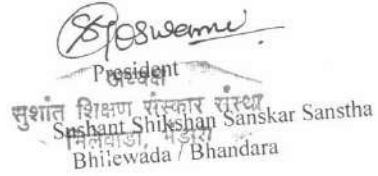 Goswami
President
अध्यक्ष
सुशांत शिक्षण संस्कार संस्था
Sushant Shikshan Sanskar Sanstha
भिलेवाडा, भंडारा
Bhilewada / Bhandara